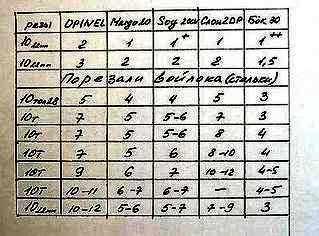 резы OPINEL Mugo 20 Sog 2000 Cлon 2DP Бак 30
10лет 2 1 1+ 1 1++
10лет 3 2 2 2 1,5
Порезали войлока (стельки)
5 4 4 5 3
10т 7 5 5-6 7 3
10т 7 5 5-6 8 4
10Т 7 5 6 8-10 4
10Т 9 6 7 10-12 4-5
10Т 10-11 6-7 6-7 — 4-5
10лет 10-12 5-6 5-7 7-9 3